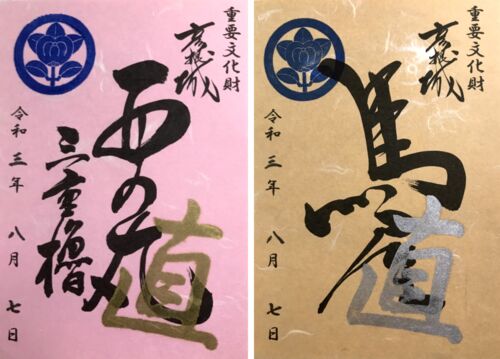 重要文化財
彦根城
西の丸
直
三重櫓
令和三年八月七日
重要文化財
彦根城
馬屋
直
令和三年八月七日